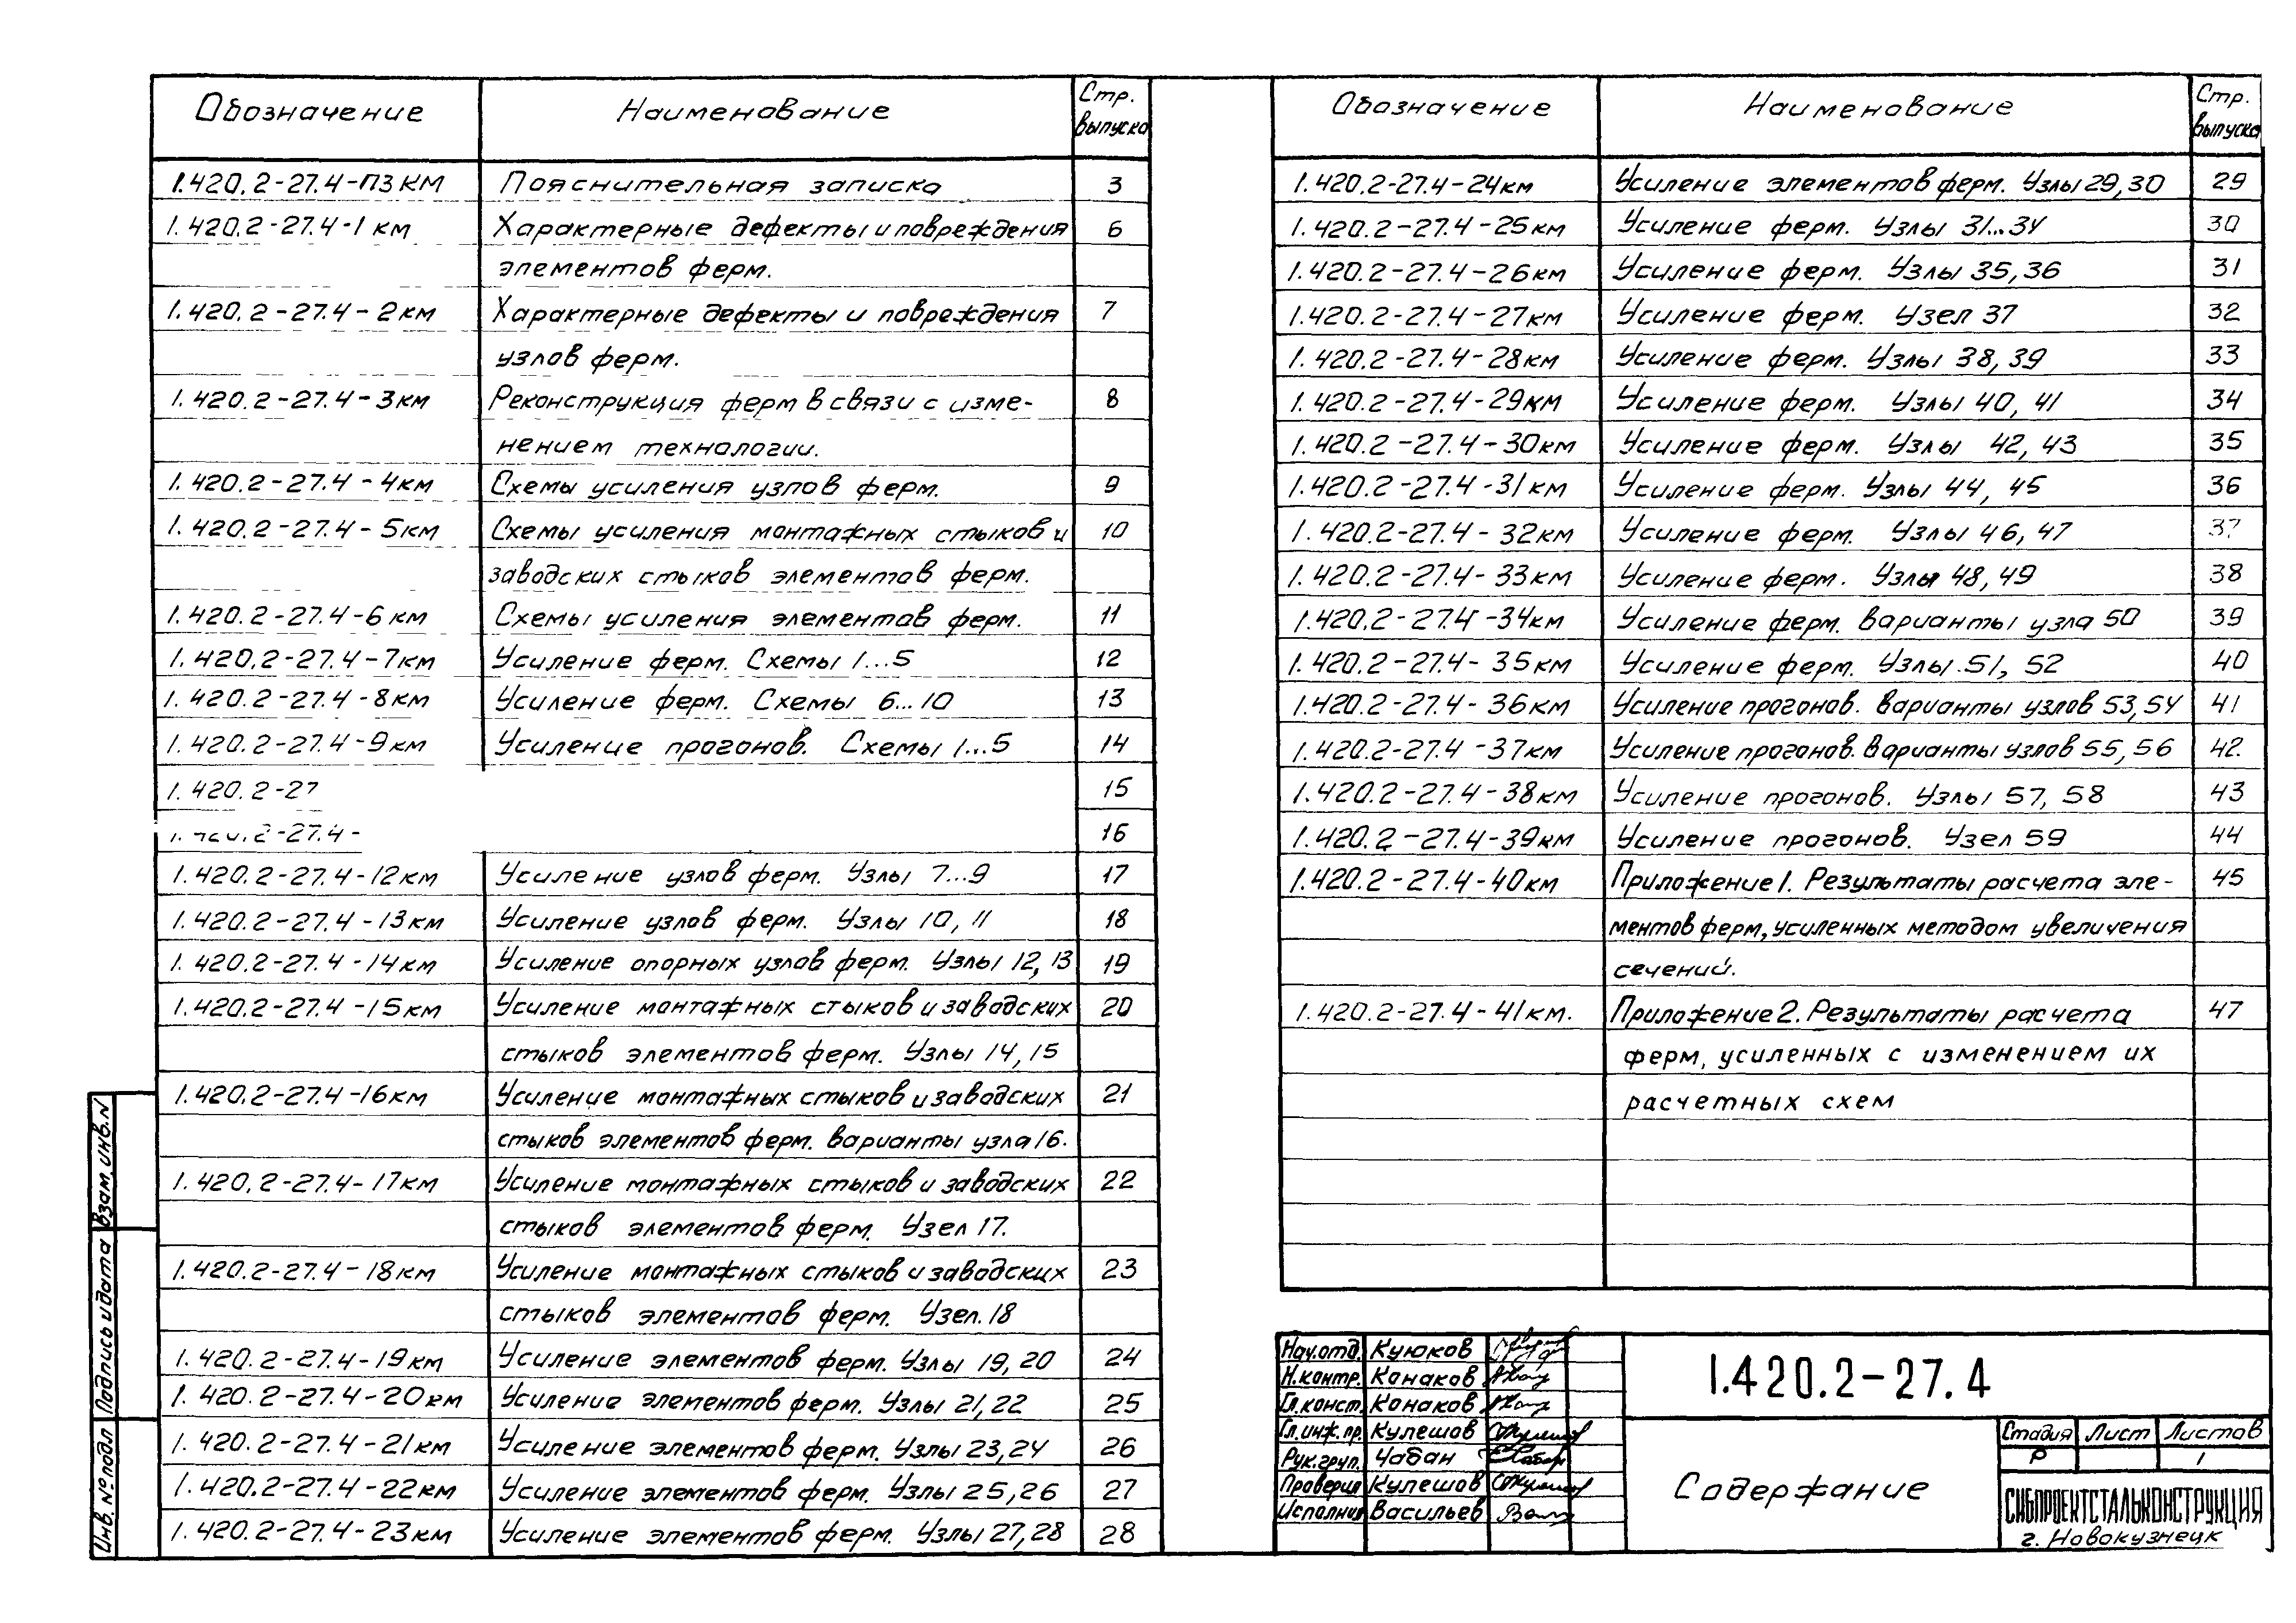 Обозначение Наименование Стр. выпуска
1.420.2-27.4-ПЗКМ Пояснительная записка 3
1.420.2-27.4-1км Характерные дефекты и повреждения 6
элементов ферм.
1.420.2-27.4-2км Характерные дефекты и повреждения 7
узлов ферм.
1.420.2-27.4-3км Реконструкция ферм в связи с изме- 8
нением технологии.
1.420.2-27.4-4км Схемы усиления узлов ферм. 9
1.420.2-27.4-5км Схемы усиления монтажных стыков и 10
заводских стыков элементов ферм.
1.420.2-27.4-6км Схемы усиления элементов ферм. 11
1.420.2-27.4-7км Усиление ферм. Схемы 1...5 12
1.420.2-27.4-8км Усиление ферм. Схемы 6...10 13
1.420.2-27.4-9км Усиление прогонов. Схемы 1...5 14
1.420.2-27 15
1.420.2-27.4- 16
1.420.2-27.4-12км Усиление узлов ферм. Узлы 7...9 17
1.420.2-27.4-13км Усиление узлов ферм. Узлы 10, 11 18
1.420.2-27.4-14км Усиление опорных узлов ферм. Узлы 12, 13 19
1.420.2-27.4-15км Усиление монтажных стыков и заводских 20
стыков элементов ферм. Узлы 14, 15
1.420.2-27.4-16км Усиление монтажных стыков и заводских 21
стыков элементов ферм. Варианты узла 16.
1.420.2-27.4-17км Усиление монтажных стыков и заводских 22
стыков элементов ферм. Узел 17.
1.420.2-27.4-18км Усиление монтажных стыков и заводских 23
стыков элементов ферм. Узел.18
1.420.2-27.4-19км Усиление элементов ферм. Узлы 19, 20 24
1.420.2-27.4-20км Усиление элементов ферм. Узлы 21, 22 25
1.420.2-27.4-21км Усиление элементов ферм. Узлы 23, 24 26
1.420.2-27.4-22км Усиление элементов ферм. Узлы 25, 26 27
1.420.2-27.4-23км Усиление элементов ферм. Узлы 27, 28 28
Обозначение Наименование Стр. выпуска
1.420.2-27.4-24км Усиление элементов ферм. Узлы 29, 30 29
1.420.2-27.4-25км Усиление ферм. Узлы 31...34 30
1.420.2-27.4-26км Усиление ферм. Узлы 35, 36 31
1.420.2-27.4-27км Усиление ферм. Узел 37 32
1.420.2-27.4-28км Усиление ферм. Узлы 38, 39 33
1.420.2-27.4-29км Усиление ферм. Узлы 40, 41 34
1.420.2-27.4-30км Усиление ферм. Узлы 42, 43 35
1.420.2-27.4-31км Усиление ферм. Узлы 44, 45 36
1.420.2-27.4-32км Усиление ферм. Узлы 46, 47 37
1.420.2-27.4-33км Усиление ферм. Узлы 48, 49 38
1.420.2-27.4-34км Усиление ферм. Варианты узла 50 39
1.420.2-27.4-35км Усиление ферм. Узлы 51, 52 40
1.420.2-27.4-36км Усиление прогонов. Варианты узлов 53, 54 41
1.420.2-27.4-37км Усиление прогонов. Варианты узлов 55, 56 42.
1.420.2-27.4-38км Усиление прогонов. Узлы 57, 58 43
1.420.2-27.4-39км Усиление прогонов. Узел 59 44
1.420.2-27.4-40км Приложение 1. Результаты расчета эле- 45
ментов ферм, усиленных методом увеличения
сечений.
1.420.2-27.4-41км. Приложение 2. Результаты расчета 47
ферм, усиленных с изменением их
расчетных схем
Взам. инв. N
Подпись и дата
Инв. № подл
Нач.отд. Куюков
Н.контр. Конаков
Гл.конст. Конаков
Гл.инж.пр. Кулешов
Рук.груп. Чабан
Проверил Кулешов
Исполнил Васильев
1.420.2-27.4
Содержание
Стадия Лист Листов
Р 1
СИБПРОЕКТСТАЛЬКОНСТРУКЦИЯ
г. Новокузнецк